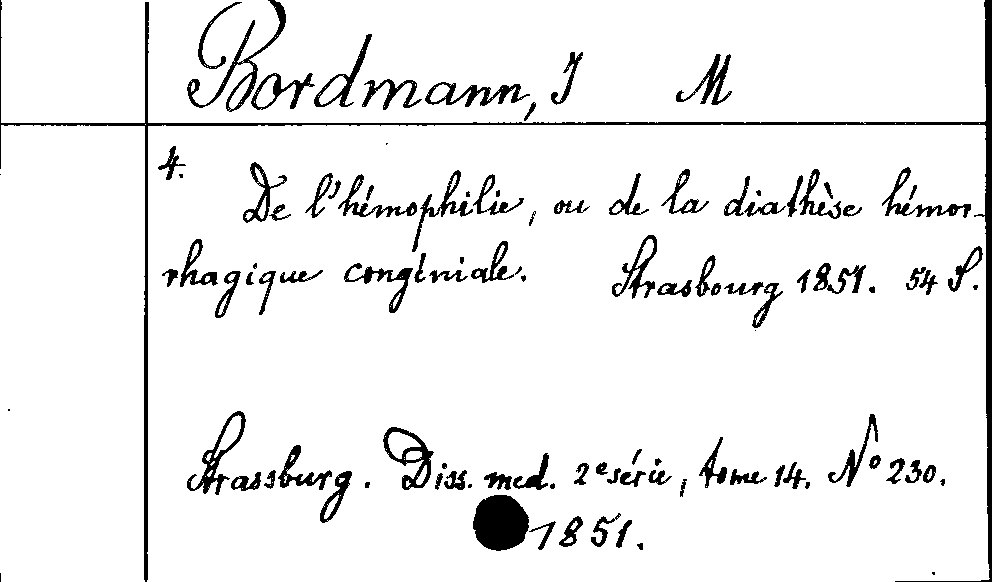 Bordmann, J M
4.
De l'hémophilie, ou de la diathèse hémor-
rhagique congéniale. Strasbourg 1851. 54 S.
Strassburg. Diss. med. 2e série, tome 14. No 230.
1851.